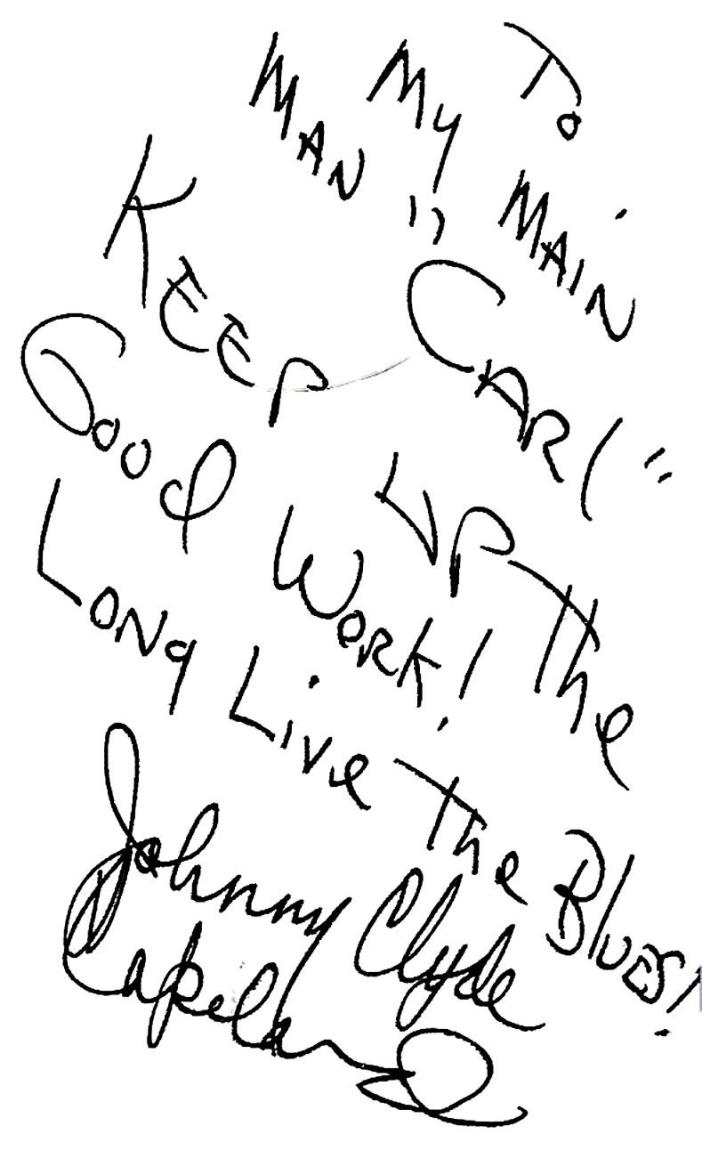 To
My Main
Man "Carl"
Keep Up The
Good Work!
Long Live The Blues!
Johnny Clyde
Copeland